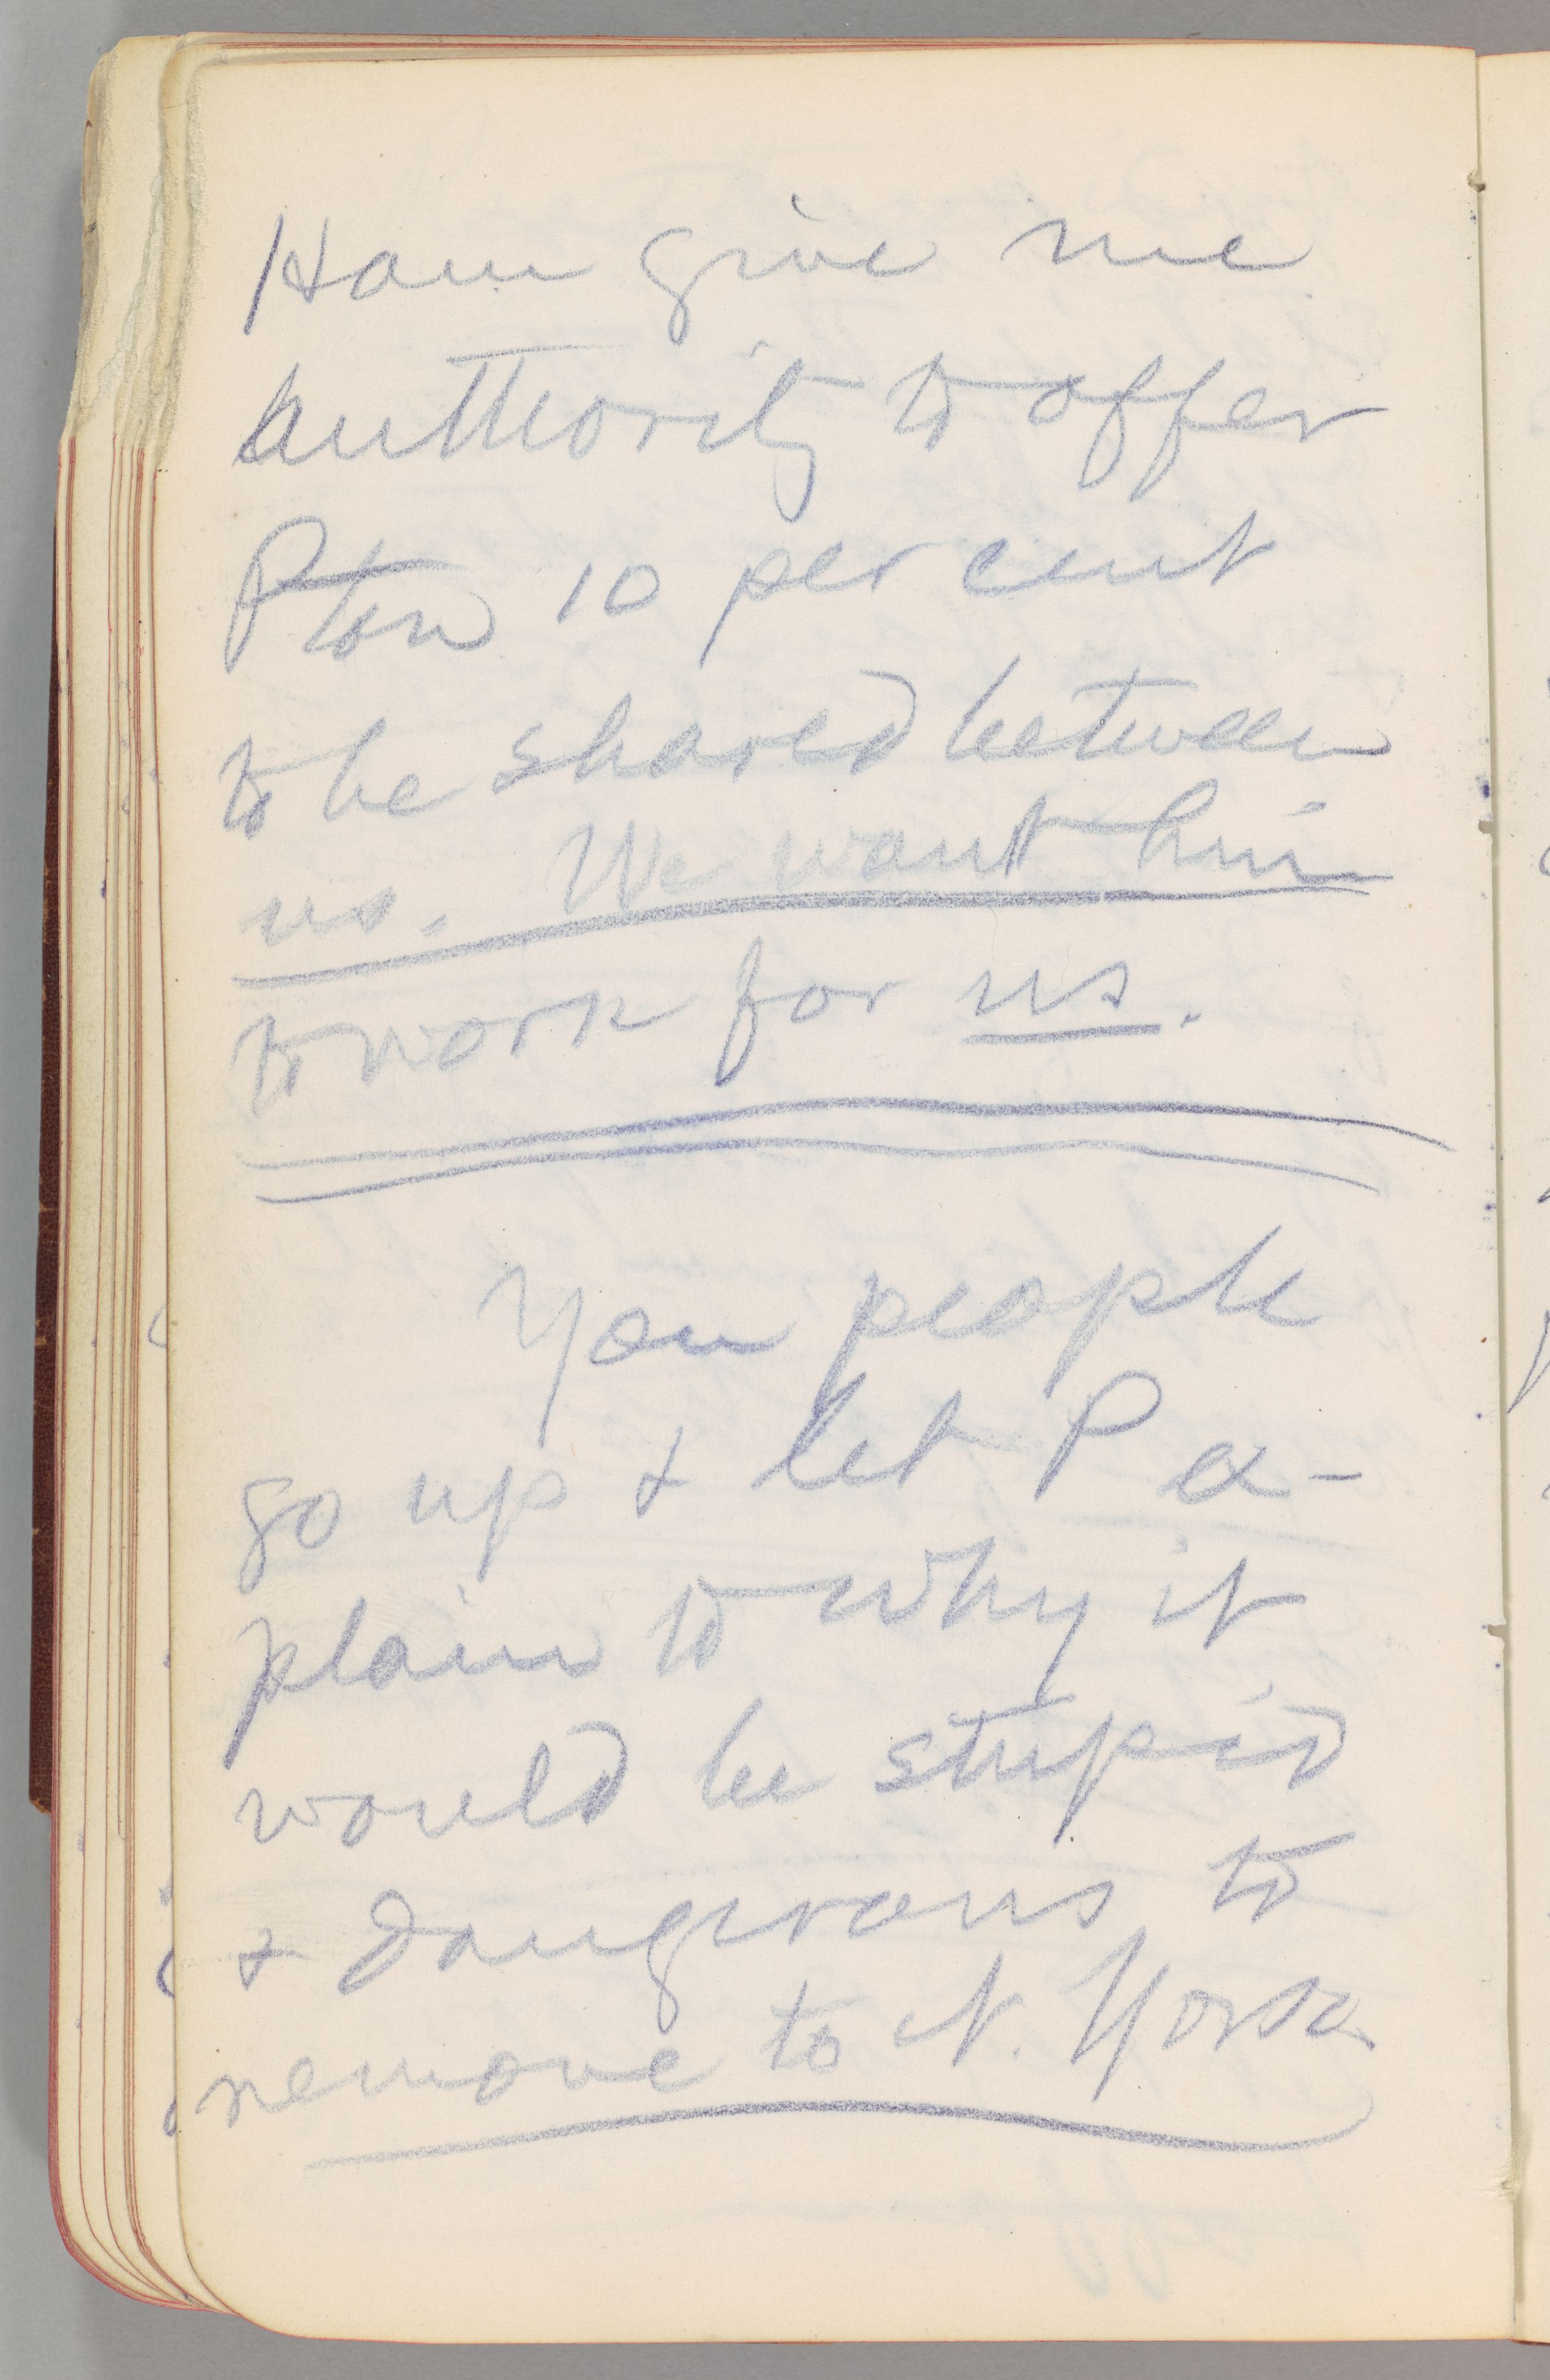 Ham give me
authority to offer
Pton 10 per cent
to be shared between
us. We want him
to work for us.
You people
go up & let P ex-
plain to why it
would be stupid
& dangerous to
remove to N. York